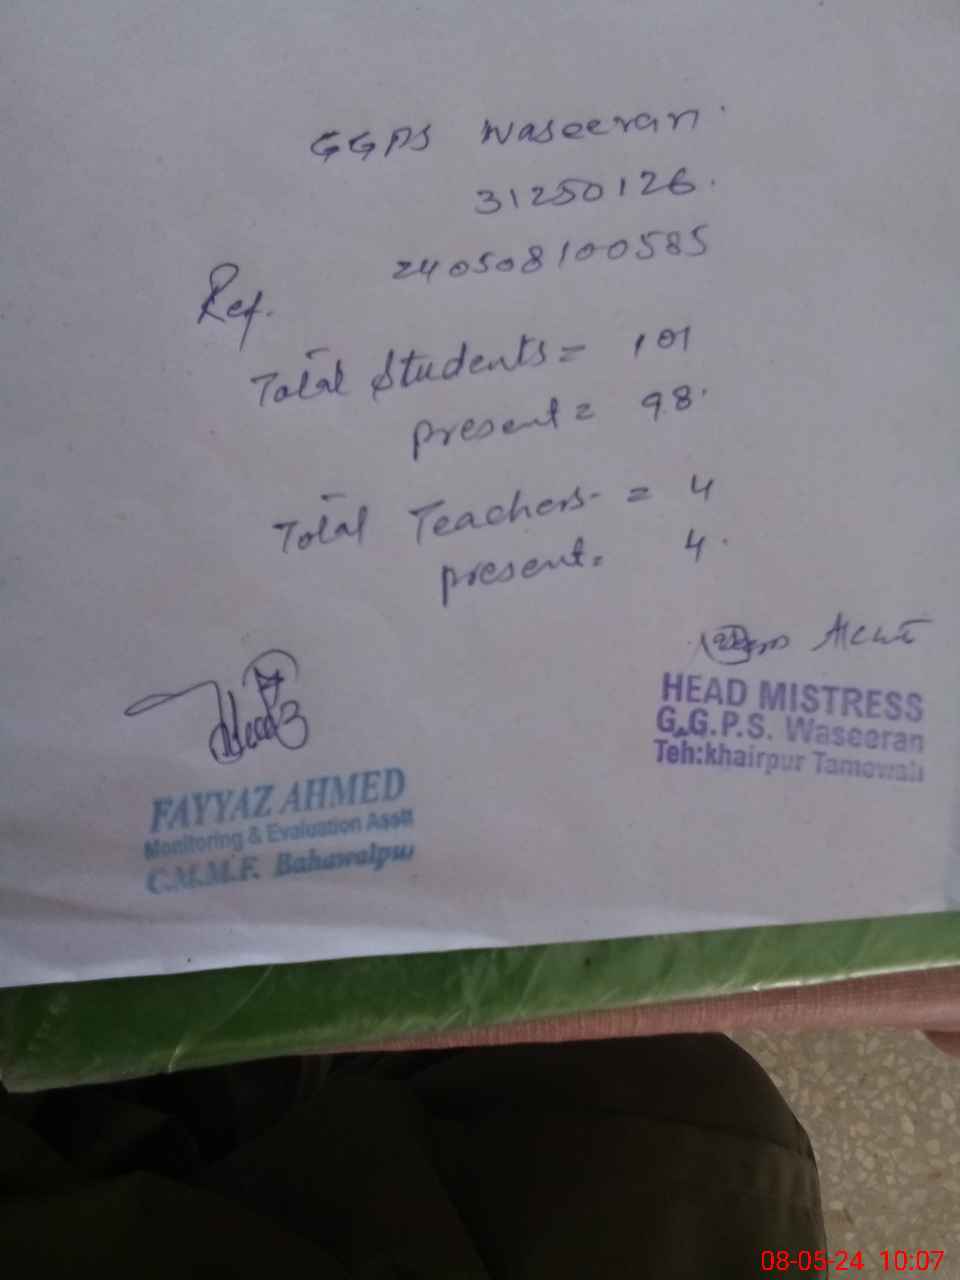 GGPS Waseeran.
31250126.
Ref. 240508100585
Total Students = 101
present = 98.
Total Teachers = 4
present = 4.
HEAD MISTRESS
G.G.P.S. Waseeran
Teh:khairpur Tamewali
FAYYAZ AHMED
Monitoring & Evaluation Asstt
C.M.M.F. Bahawalpur
08-05-24 10:07